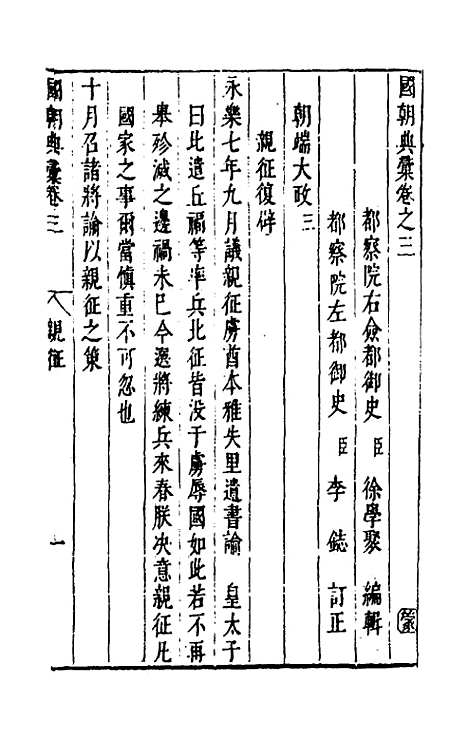 國朝典彙卷之三
都察院右僉都御史 臣 徐學聚 編輯
都察院左都御史 臣 李 鋕 訂正
朝端大政 三
親征復辟
永樂七年九月議親征虜酋本雅失里遺書諭 皇太子
曰比遣丘福等率兵北征皆没于虜辱國如此若不再
舉殄滅之邊禍未已今選將練兵來春朕决意親征凡
國家之事爾當慎重不可忽也
十月召諸將諭以親征之策
國朝典彙卷三 親征 一